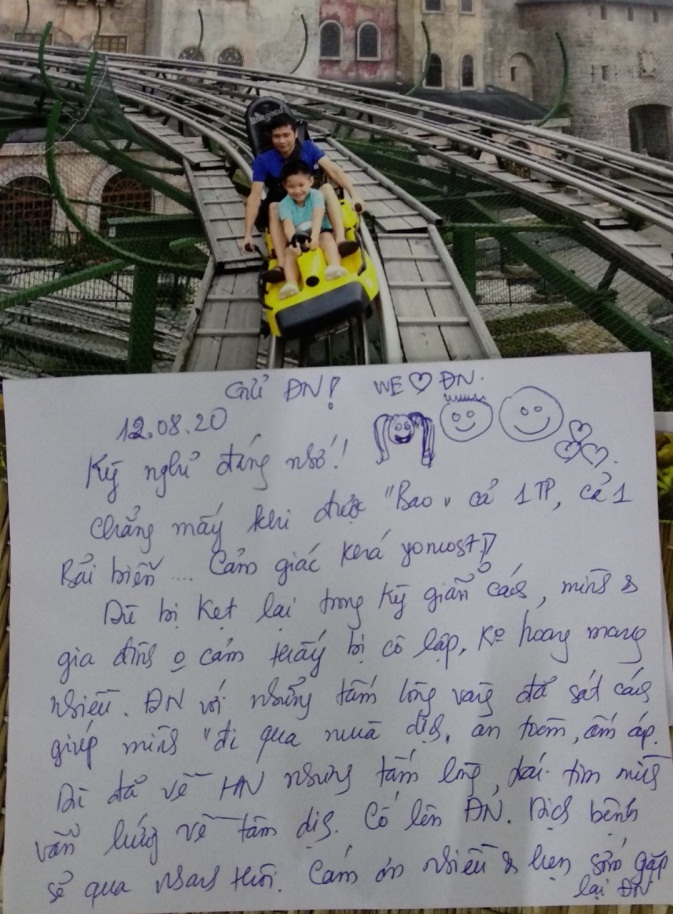 Gửi ĐN! WE ♡ ĐN.
12.08.20
Kỳ nghỉ đáng nhớ!
Chẳng mấy khi được "Bao" cả 1 TP, cả 1
Bãi biển .... Cảm giác khá yomost!
Dù bị kẹt lại trong kỳ giãn cách, mình &
gia đình o cảm thấy bị cô lập, ko hoang mang
nhiều. ĐN với những tấm lòng vàng đã sát cánh
giúp mình "đi qua mùa dịch" an toàn, ấm áp.
Dù đã về HN nhưng tấm lòng, trái tim mình
vẫn hướng về tâm dịch. Cố lên ĐN. Dịch bệnh
sẽ qua nhanh thôi. Cám ơn nhiều & hẹn sớm gặp
lại ĐN